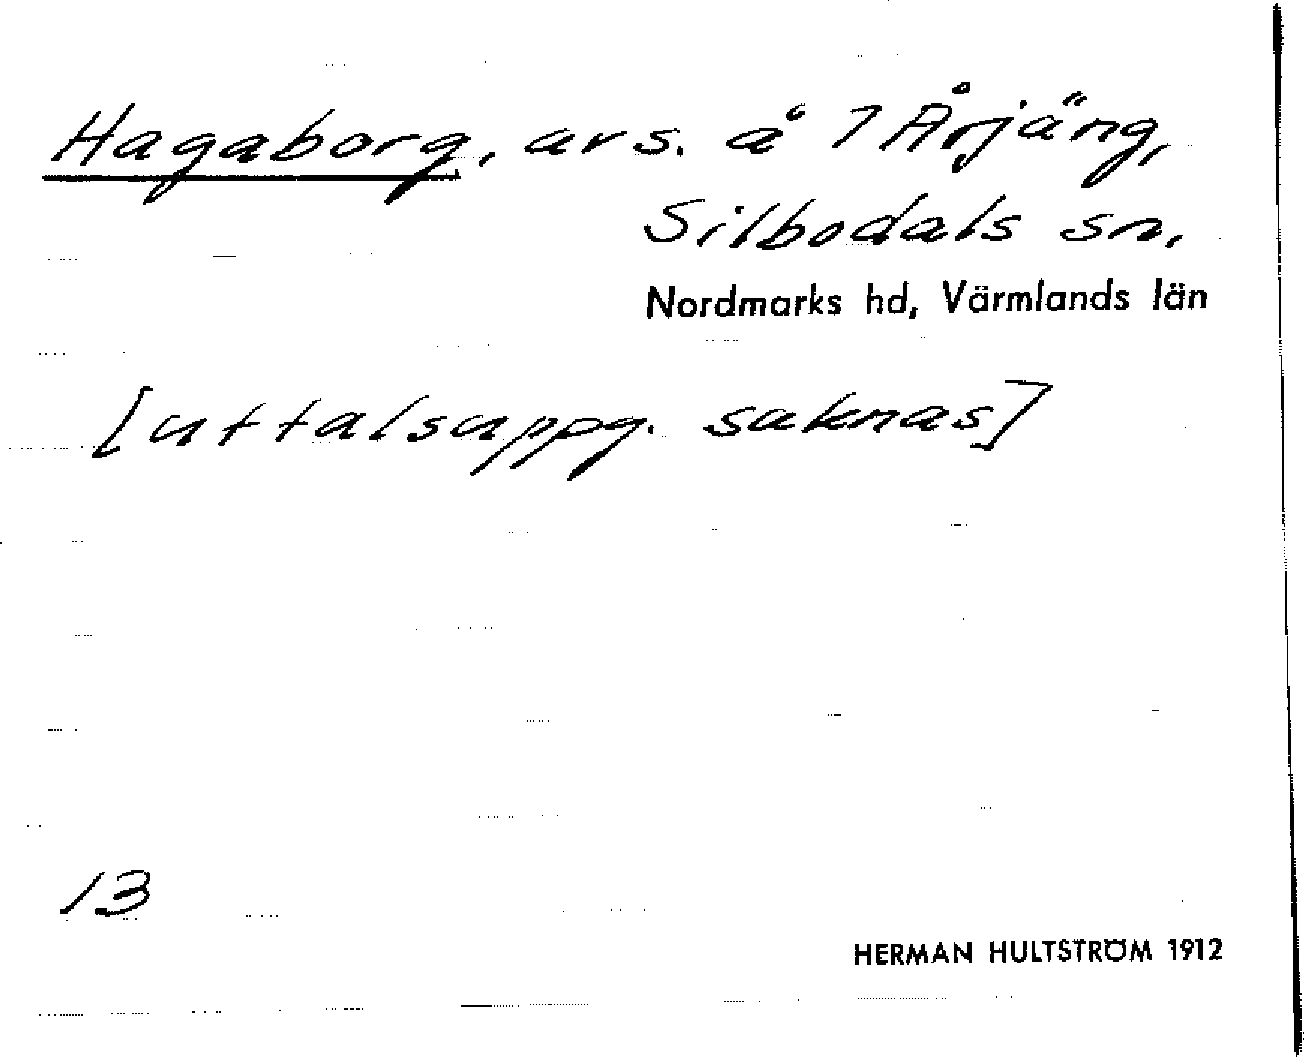 Hagaborg, avs. å 7 Årjäng,
Silbodals sn,
Nordmarks hd, Värmlands län
[uttalsuppg. saknas]
13
HERMAN HULTSTRÖM 1912